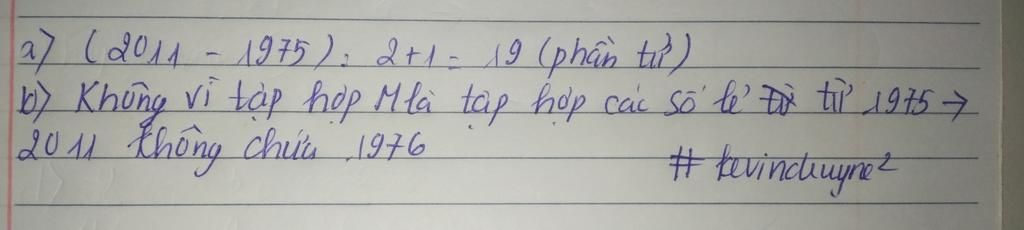 a) (2011 - 1975) : 2+1 = 19 (phần tử)
b) Không vì tập hợp M là tập hợp các số lẻ từ từ 1975 →
2011 không chứa 1976
# kevinchuyne²